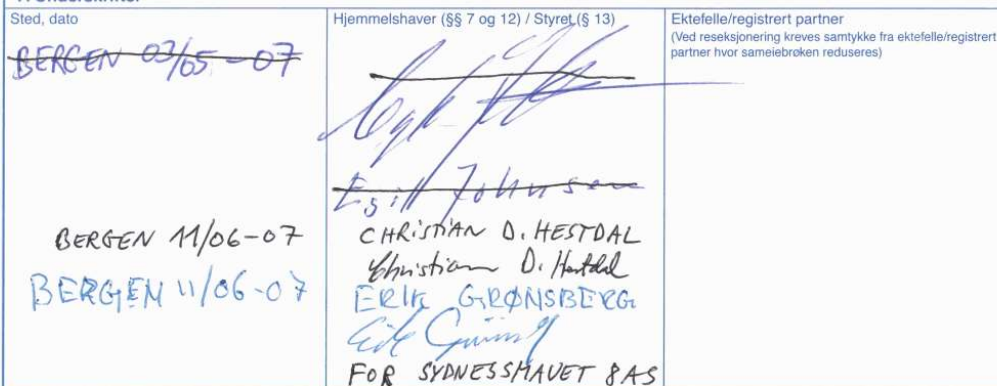 Sted, dato
BERGEN 03/05-07
BERGEN 11/06-07
BERGEN 11/06-07
Hjemmelshaver (§§ 7 og 12) / Styret (§ 13)
Egill Johnsen
CHRISTIAN D. HESTDAL
Christian D. Hestdal
ERIK GRØNSBERG
FOR SYDNESSMAUET 8 AS
Ektefelle/registrert partner
(Ved reseksjonering kreves samtykke fra ektefelle/registrert
partner hvor sameiebrøken reduseres)